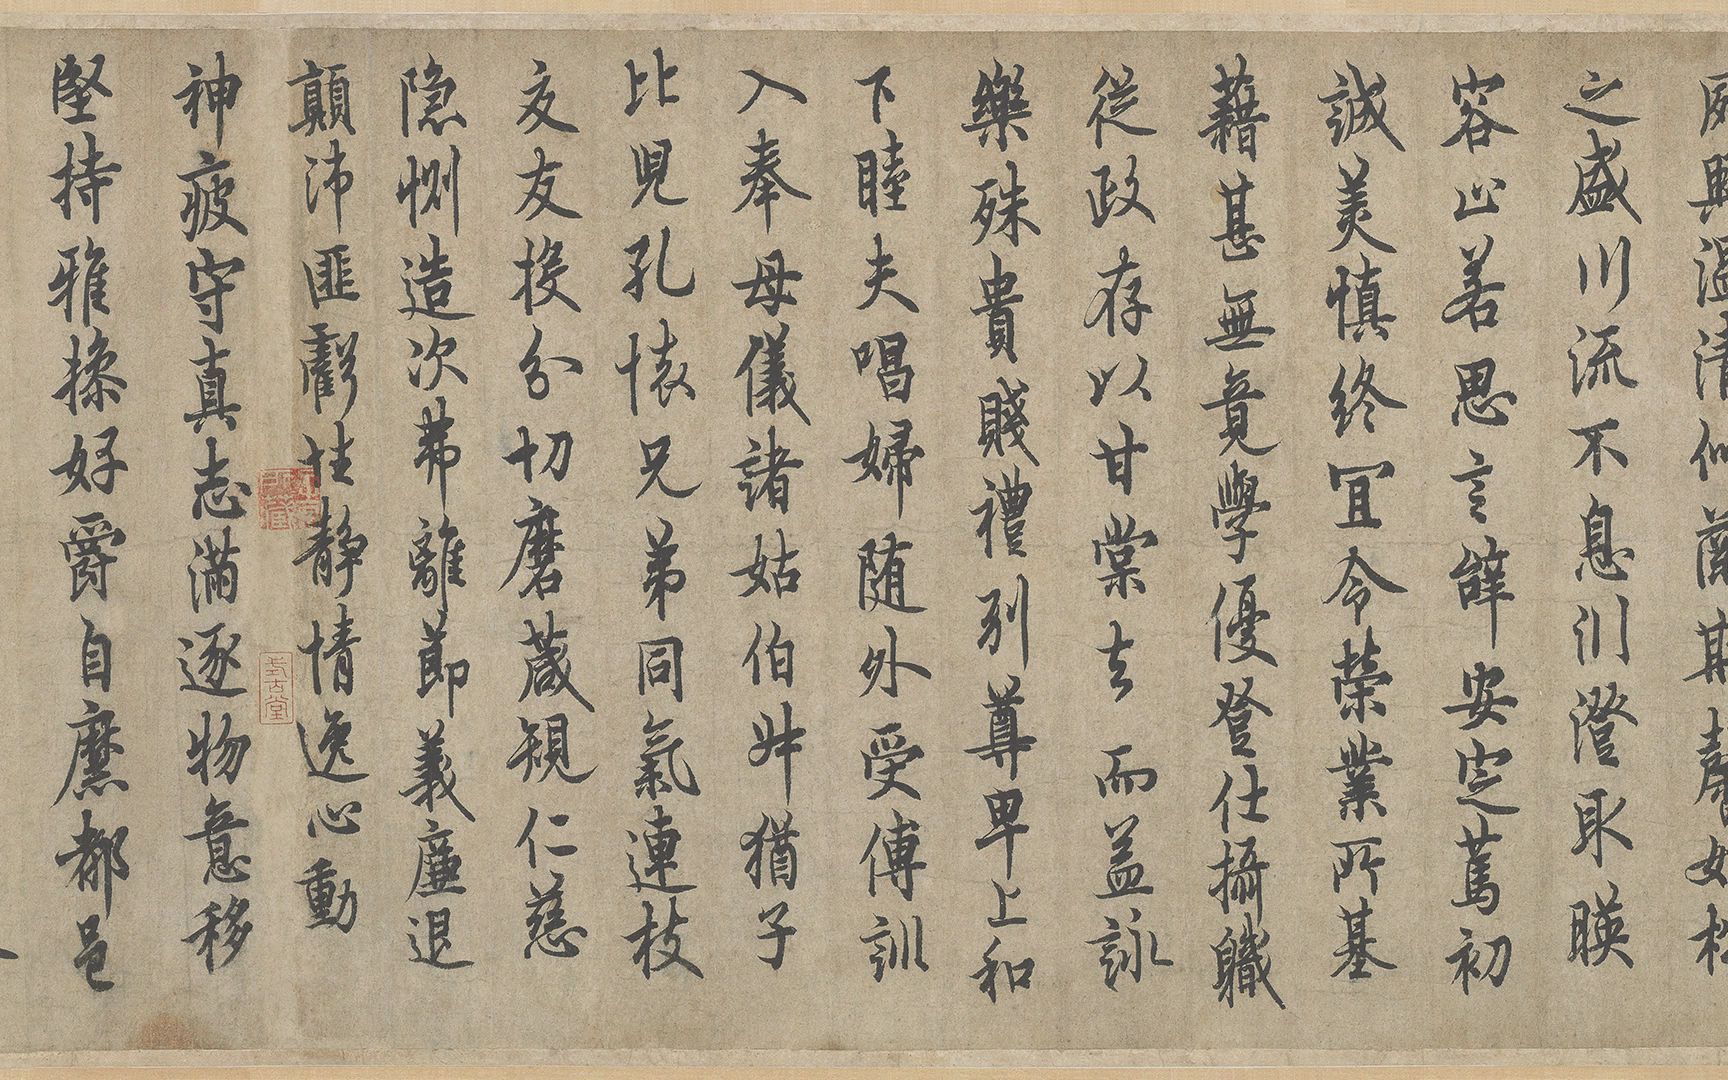 夙興溫清似蘭斯馨如松
之盛川流不息川澄取暎
容止若思言辞安定篤初
誠美慎終宜令榮業所基
藉甚無竟學優登仕攝職
從政存以甘棠去而益詠
樂殊貴賤禮別尊卑上和
下睦夫唱婦随外受傅訓
入奉母儀諸姑伯叔猶子
比兒孔懐兄弟同氣連枝
交友投分切磨葴規仁慈
隐惻造次弗離節義廉退
顛沛匪虧性静情逸心動
神疲守真志滿逐物意移
堅持雅操好爵自縻都邑
式古堂